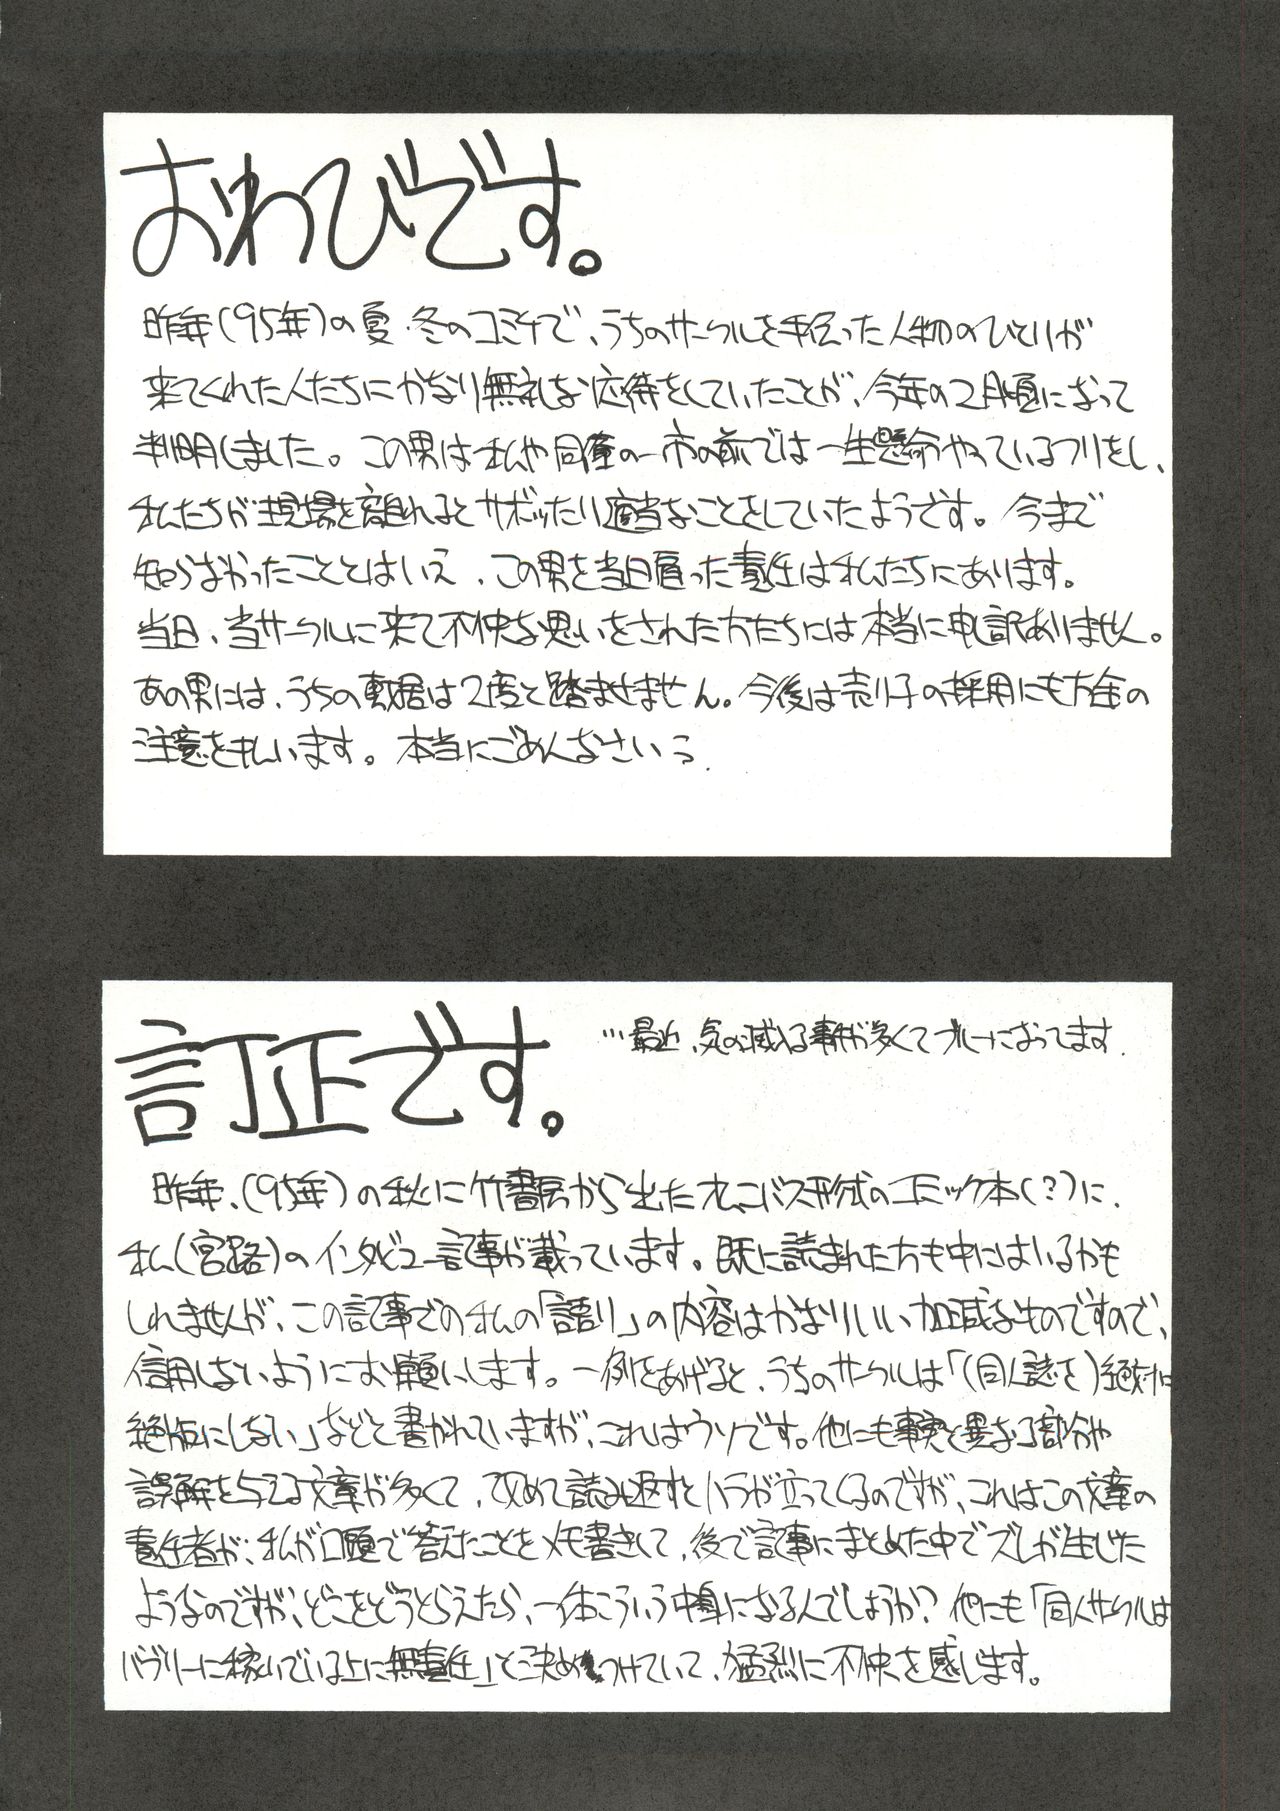 おわびです。
昨年(95年)の夏・冬のコミケで、うちのサークルを手伝った人物のひとりが
来てくれた人たちにかなり無礼な応待をしていたことが、今年の2月頃になって
判明しました。この男は私や同僚の一市の前では一生懸命やっているフリをし、
私たちが現場を離れるとサボったり適当なことをしていたようです。今まで
知らなかったこととはいえ、この男を当日雇った責任は私たちにあります。
当日、当サークルに来て不快な思いをされた方たちには本当に申し訳ありません。
あの男には、うちの敷居は2度と踏ませません。今後は売り子の採用にも万全の
注意を払います。本当にごめんなさいっ.
訂正です。
…最近、気の滅入る事件が多くてブルーになってます.
昨年、(95年)の秋に竹書房から出たオムニバス形式のコミック本(?)に、
私(宮路)のインタビュー記事が載っています。既に読まれた方も中にはいるかも
しれませんが、この記事での私の「語り」の内容はかなりいい加減なものですので、
信用しないようにお願いします。一例をあげると、うちのサークルは「(同人誌を)絶対に
絶版にしない」などと書かれていますが、これはウソです。他にも事実と異なる部分や
誤解を与える文章が多くて、改めて読み返すとハラが立ってくるのですが、これはこの文章の
責任者が、私が口頭で答えたことをメモ書きして、後で記事にまとめた中でズレが生じた
ようなのですが、どこをどうとらえたら、一体こういう中身になるんでしょうか?他にも「同人サークルは
バブリーに稼いでいる上に無責任」と決めつけていて、猛烈に不快を感じます。